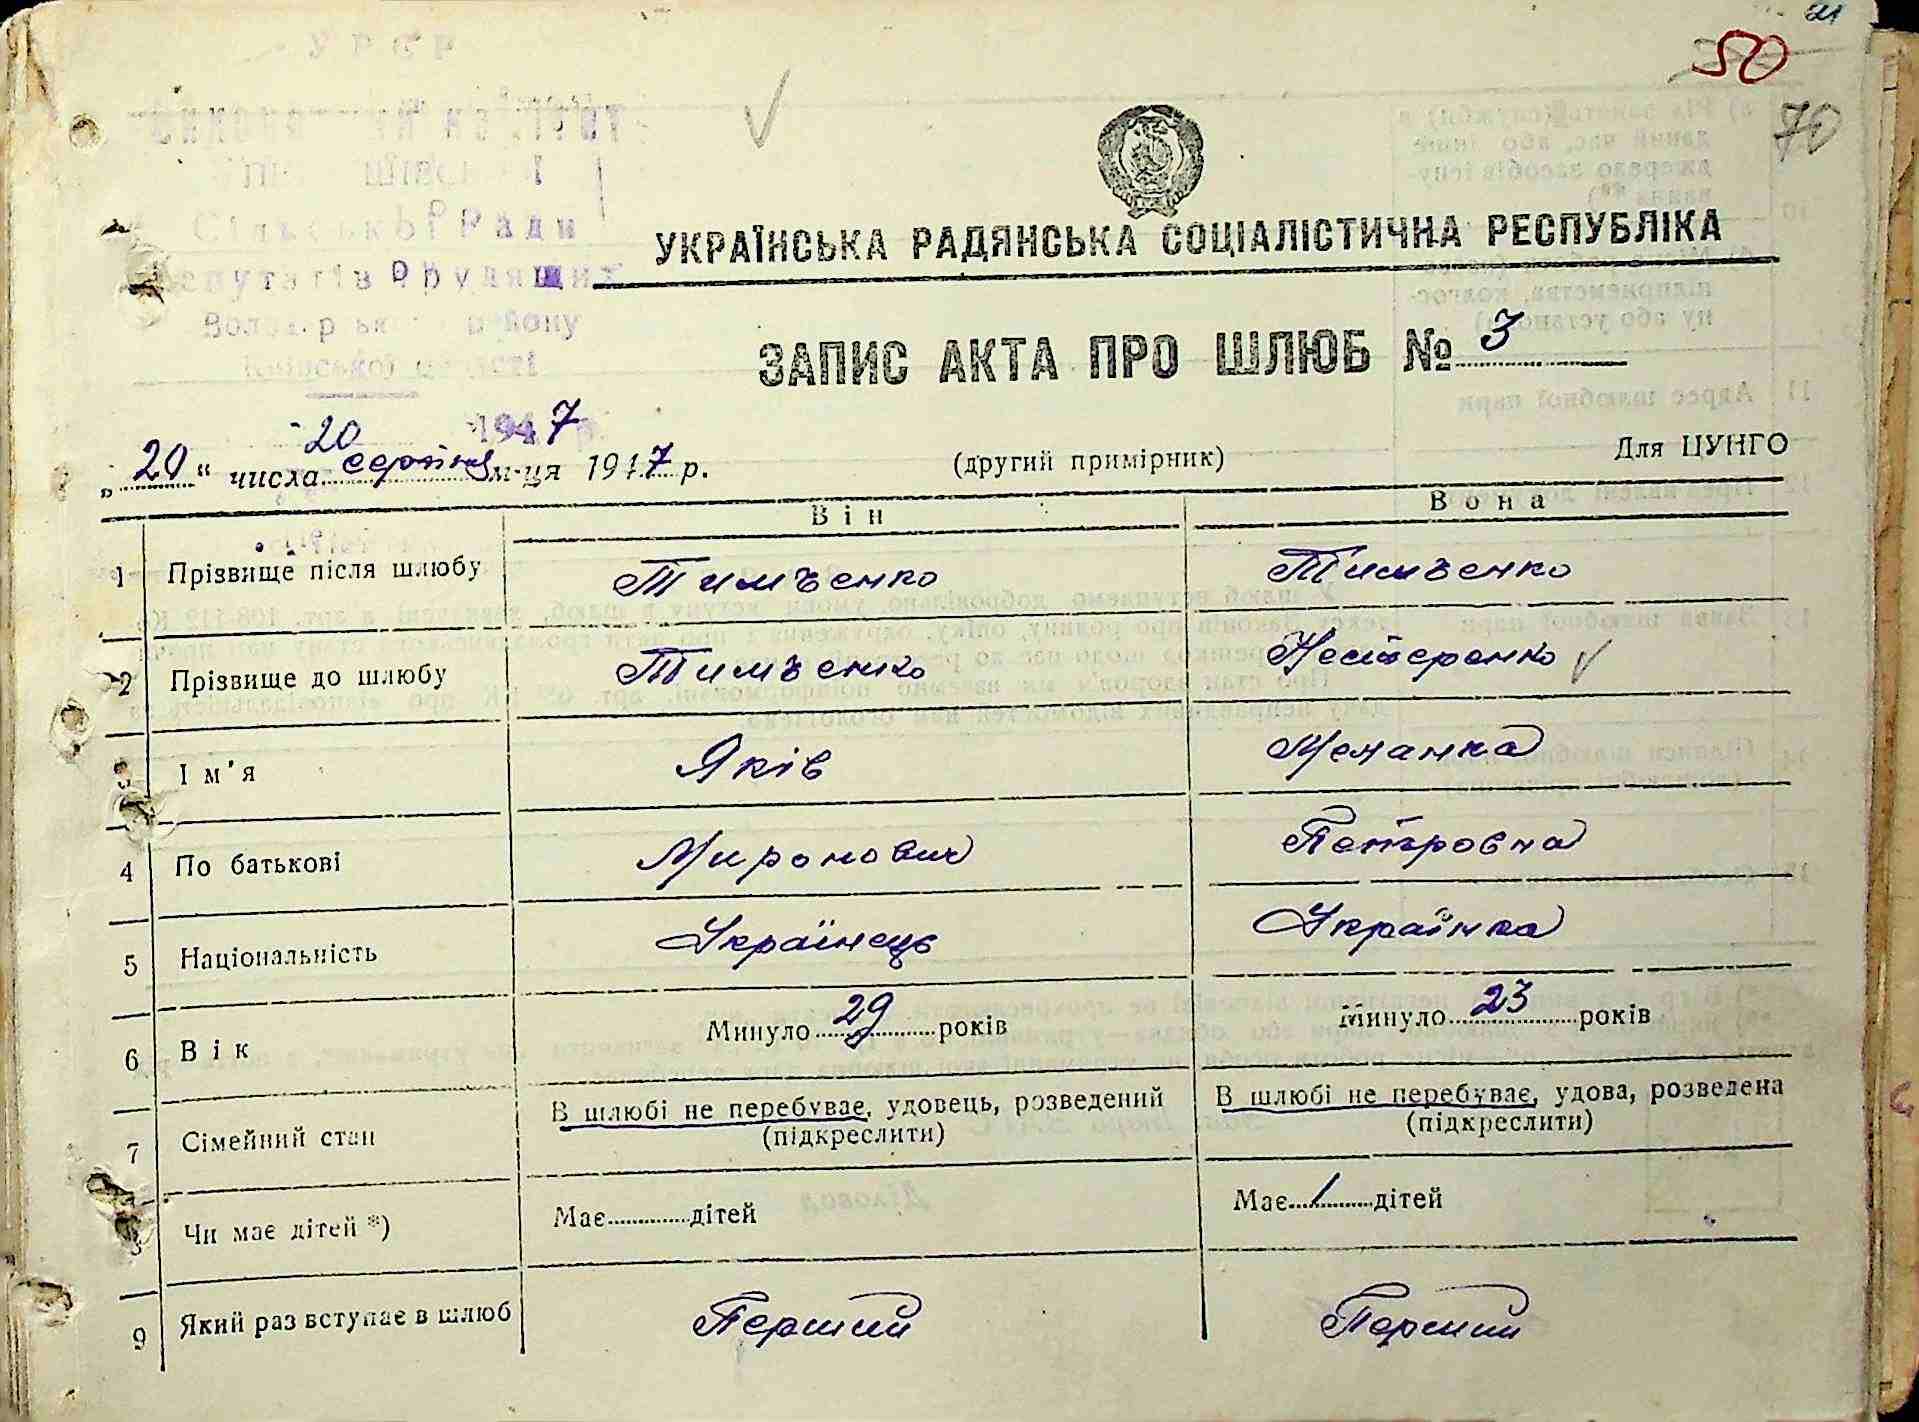 21
50
70
УРСР
Сільської Ради
Депутатів Трудящих
району
Київської області
20 1947 р.
УКРАЇНСЬКА РАДЯНСЬКА СОЦІАЛІСТИЧНА РЕСПУБЛІКА
ЗАПИС АКТА ПРО ШЛЮБ № 3
„20“ числа серпня м-ця 1947 р. (другий примірник) Для ЦУНГО
Він Вона
1 Прізвище після шлюбу Тимченко Тимченко
2 Прізвище до шлюбу Тимченко Нестеренко
3 Ім'я Яків Меланка
4 По батькові Миронович Петровна
5 Національність Українець Українка
6 Вік Минуло 29 років Минуло 23 років
7 Сімейний стан В шлюбі не перебуває, удовець, розведений (підкреслити) В шлюбі не перебуває, удова, розведена (підкреслити)
8 Чи має дітей *) Має дітей Має 1 дітей
9 Який раз вступає в шлюб Перший Перший